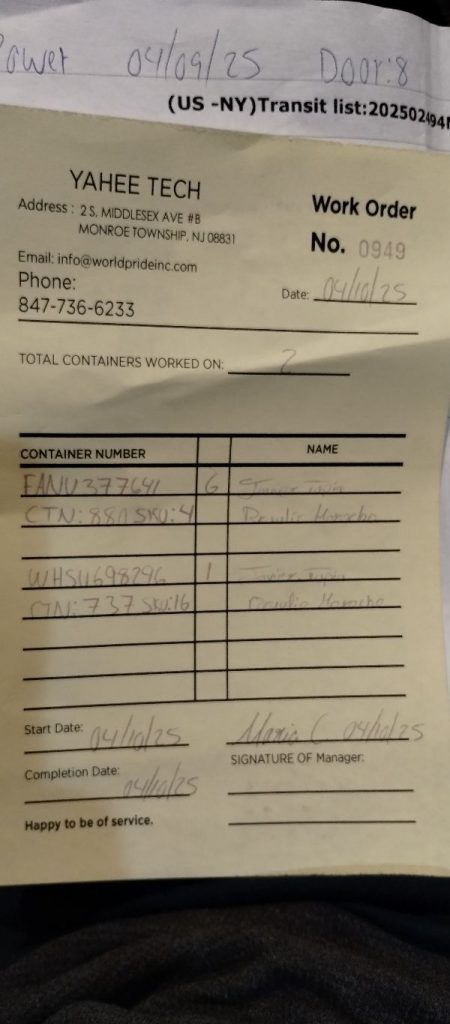 04/09/25 Door:8
(US -NY)Transit list:202502494
YAHEE TECH
Address : 2 S. MIDDLESEX AVE #B
MONROE TOWNSHIP, NJ 08831
Email: info@worldprideinc.com
Phone:
847-736-6233
Work Order
No. 0949
Date: 04/10/25
TOTAL CONTAINERS WORKED ON: 2
CONTAINER NUMBER NAME
6
CTN: 881 SKU: 4
1
CTN: 737 SKU:16
Start Date: 04/10/25
Maria C 04/10/25
SIGNATURE OF Manager:
Completion Date: 04/10/25
Happy to be of service.